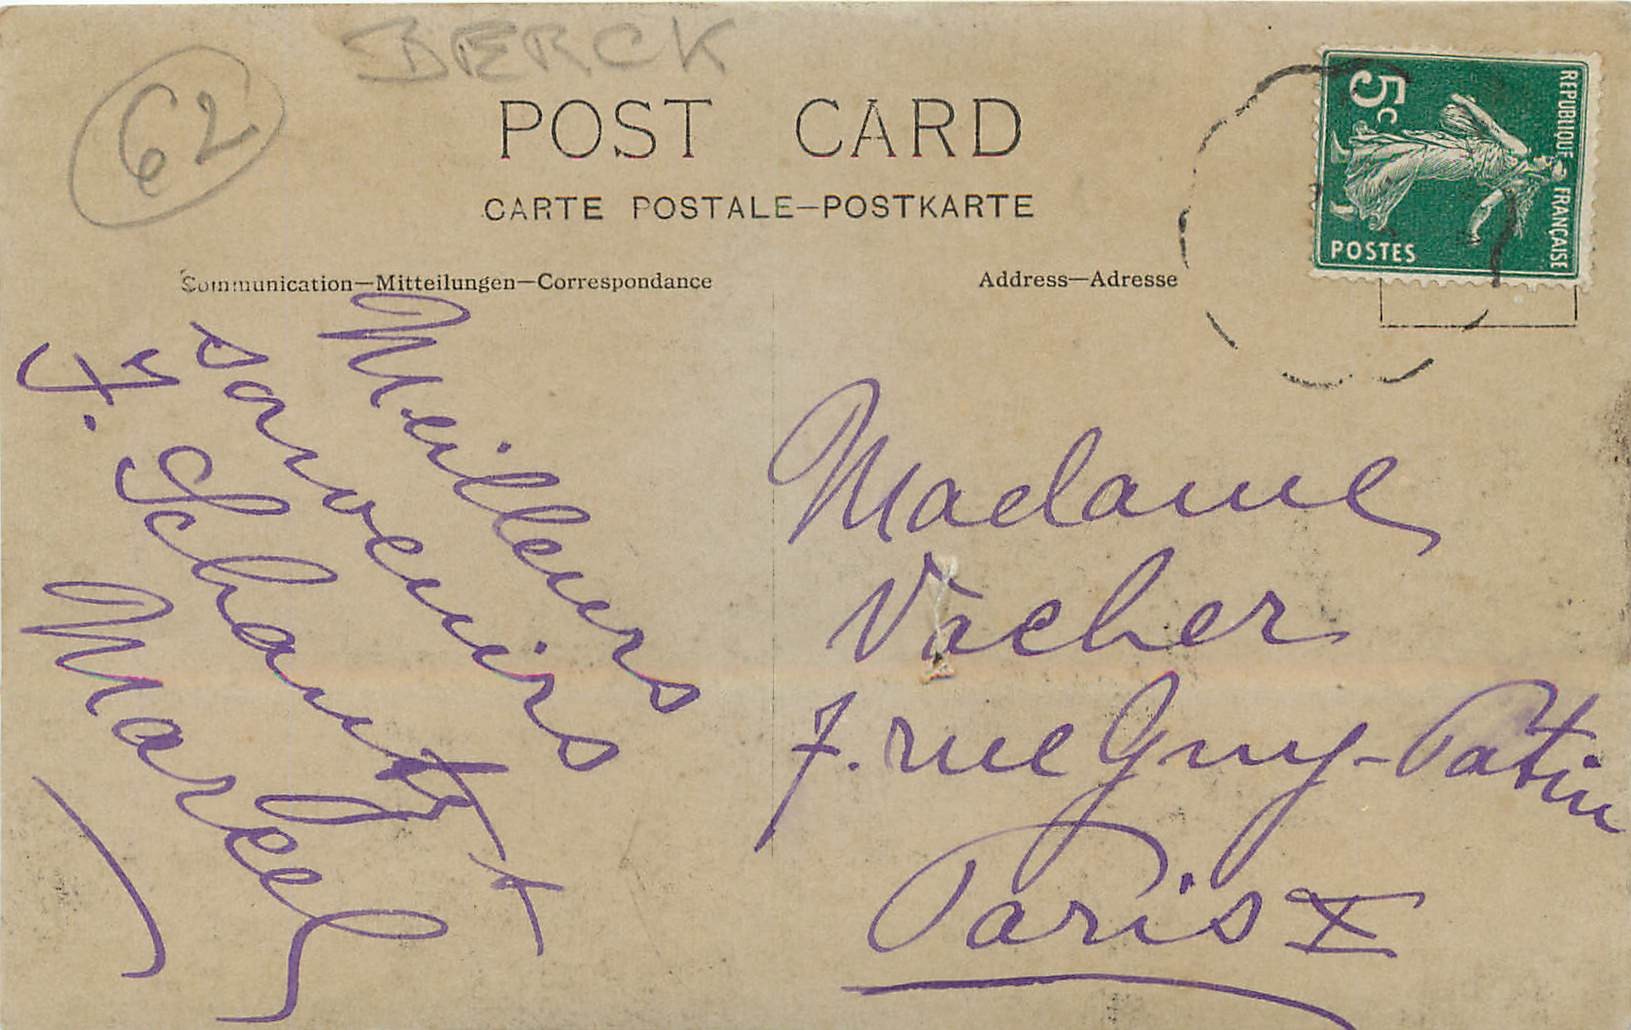 BERCK
62
POST CARD
CARTE POSTALE—POSTKARTE
Communication—Mitteilungen—Correspondance
Address—Adresse
5c
REPUBLIQUE FRANÇAISE
POSTES
Meilleurs
souvenirs
Marcel
Madame
Vacher
7. rue Guy-Patin
Paris X